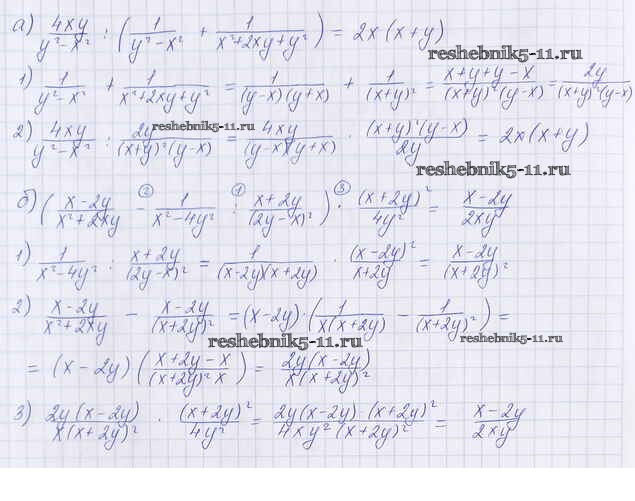 а) 4xy/(y²-x²) : (1/(y²-x²) + 1/(x²+2xy+y²)) = 2x(x+y)
reshebnik5-11.ru
1) 1/(y²-x²) + 1/(x²+2xy+y²) = 1/((y-x)(y+x)) + 1/(x+y)² = (x+y+y-x)/((x+y)²(y-x)) = 2y/((x+y)²(y-x))
reshebnik5-11.ru
2) 4xy/(y²-x²) : 2y/((x+y)²(y-x)) = 4xy/((y-x)(y+x)) · (x+y)²(y-x)/2y = 2x(x+y)
reshebnik5-11.ru
б) ((x-2y)/(x²+2xy) -② 1/(x²-4y²) :① (x+2y)/(2y-x)²) ·③ (x+2y)²/4y² = (x-2y)/2xy
1) 1/(x²-4y²) : (x+2y)/(2y-x)² = 1/((x-2y)(x+2y)) · (x-2y)²/(x+2y) = (x-2y)/(x+2y)²
2) (x-2y)/(x²+2xy) - (x-2y)/(x+2y)² = (x-2y)·(1/(x(x+2y)) - 1/(x+2y)²) =
reshebnik5-11.ru reshebnik5-11.ru
= (x-2y)((x+2y-x)/((x+2y)²x)) = 2y(x-2y)/(x(x+2y)²)
3) 2y(x-2y)/(x(x+2y)²) · (x+2y)²/4y² = 2y(x-2y)·(x+2y)²/(4xy²(x+2y)²) = (x-2y)/2xy